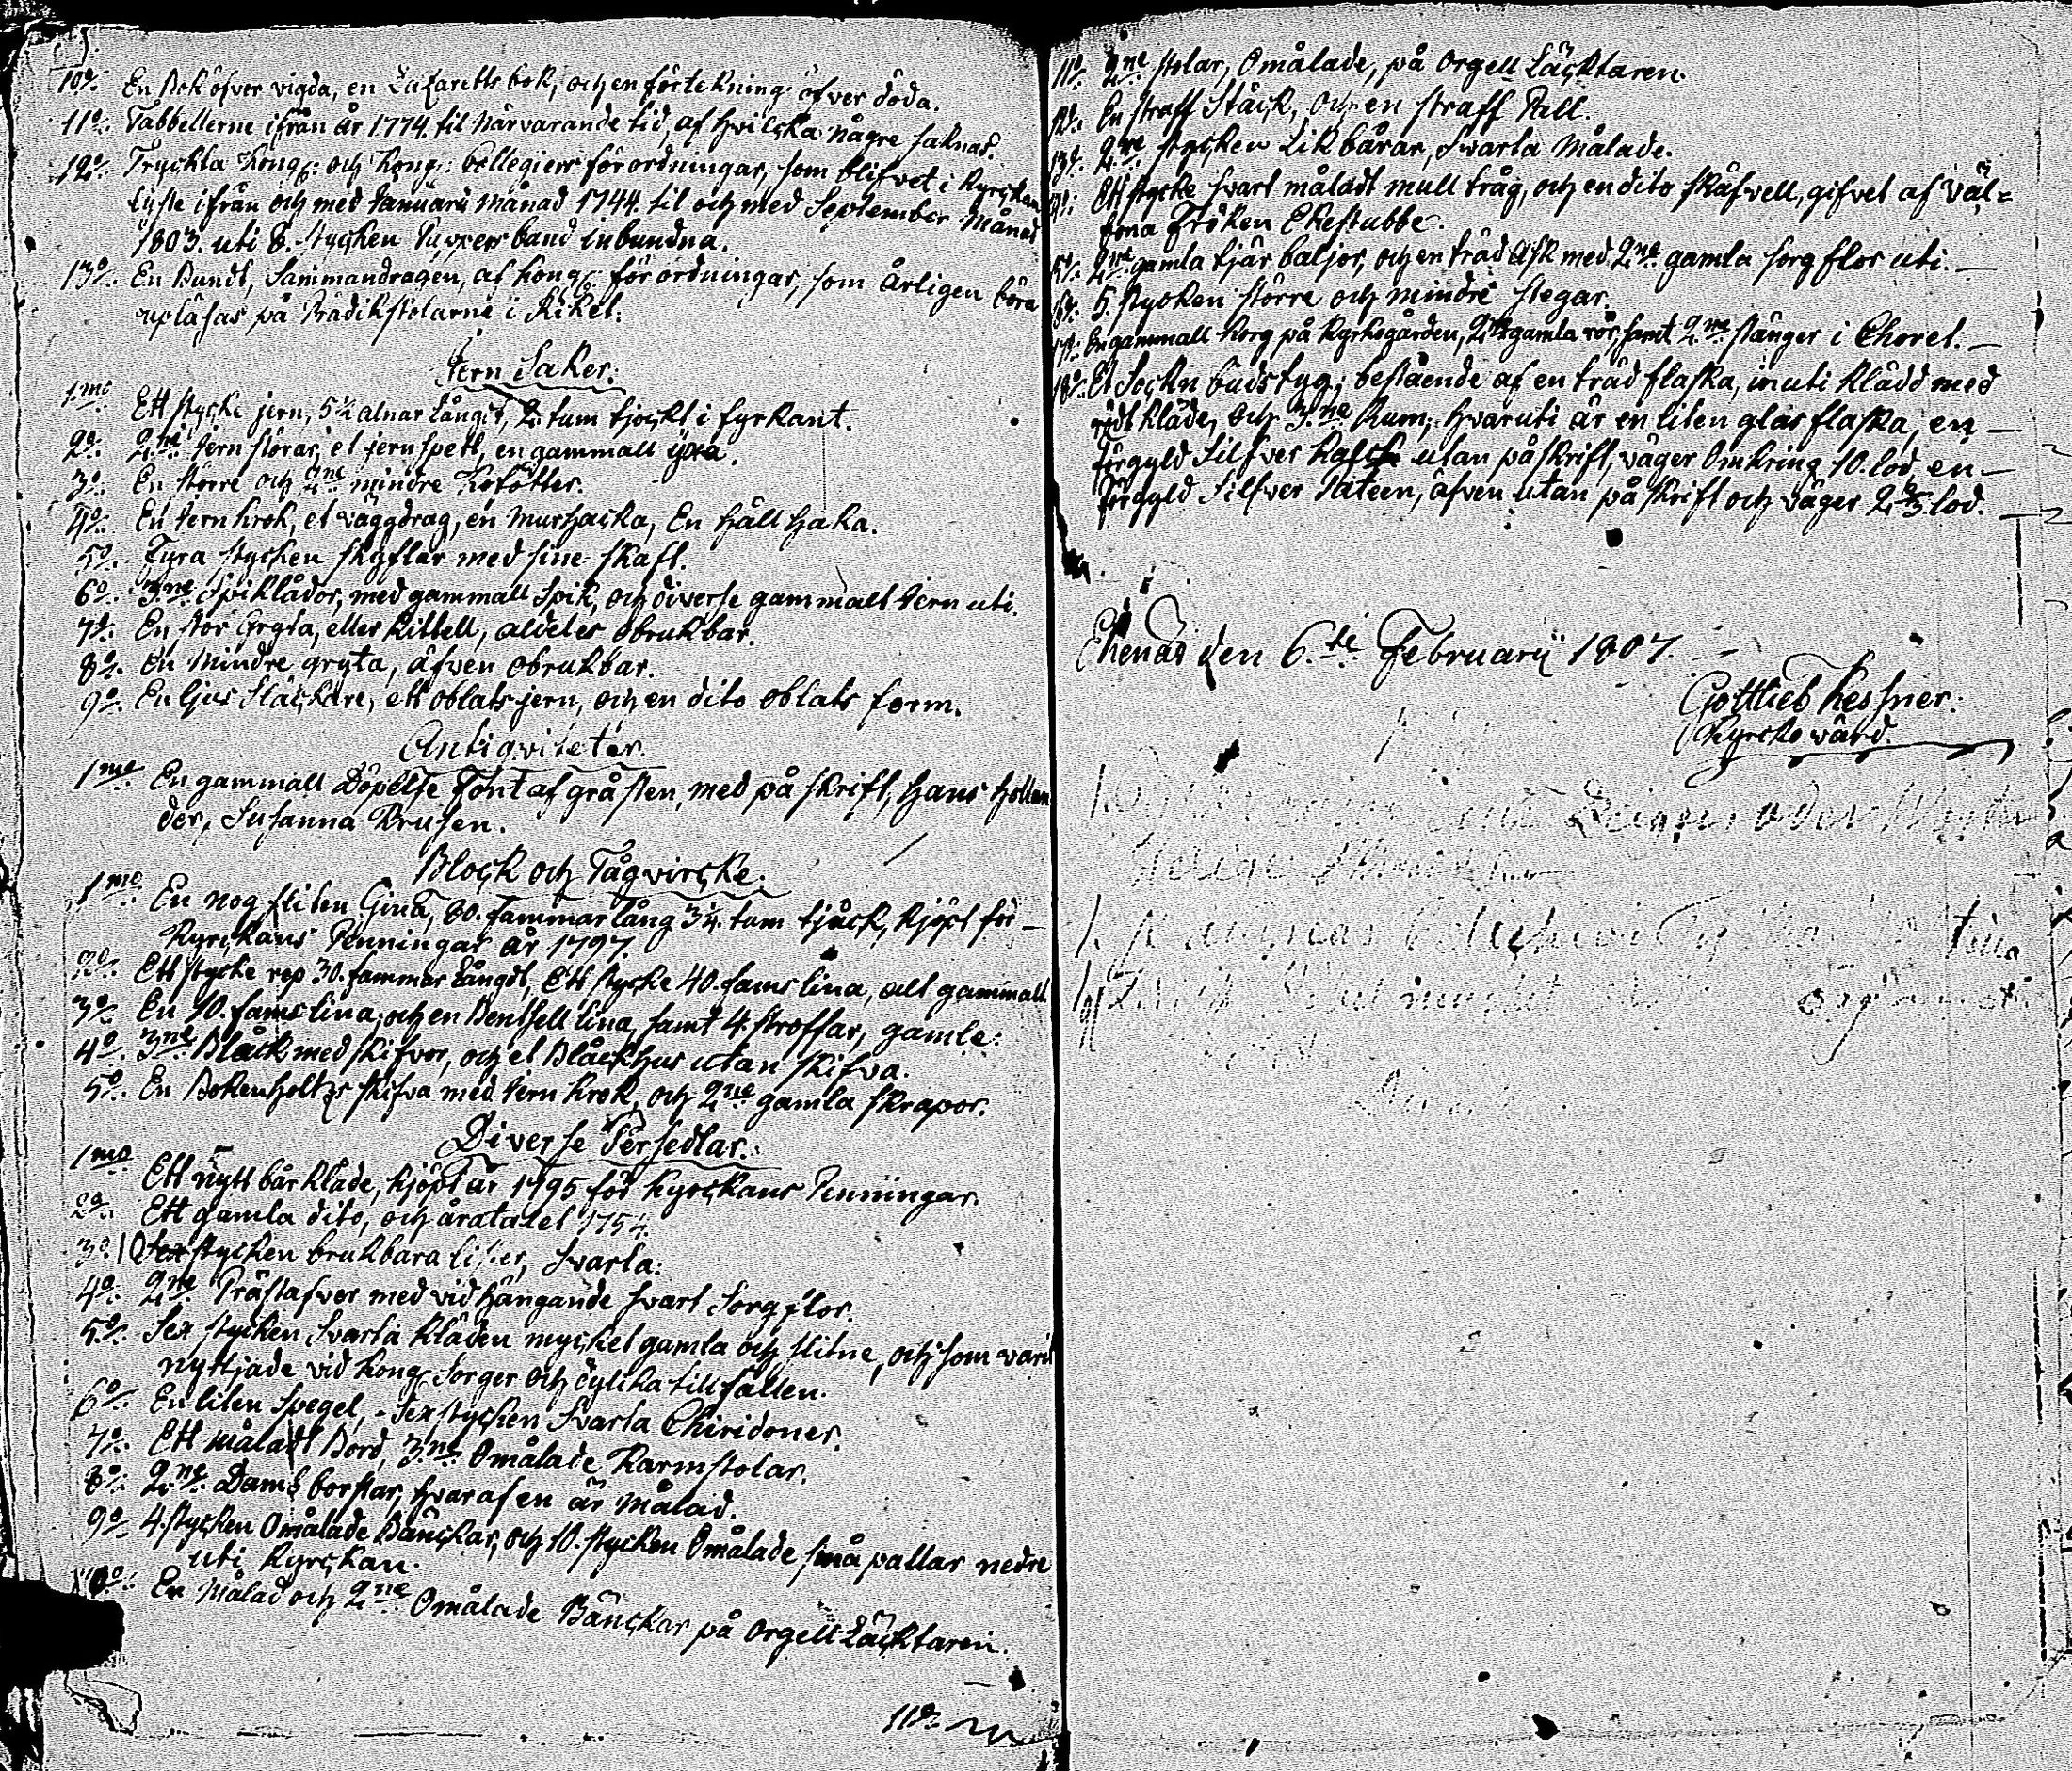 10º. En Bok öfver vigda, en Lazaretts bok, och en förtekning öfver döda.
11º. Tabbellerne ifrån år 1774. til närvarande tid, af hvilcka någre saknas.
12º. Tryckta Kongl: och Kongl: Collegiers förordningar, som blifvet i Kyrckan
lyste ifrån och med Januarii månad 1744. til och med September Månad
1803. uti 8. stycken Pappersband inbundna.
13º. En Bundt, Sammandragen, af Kongl: förordningar, som årligen böra
upläsas på Prädikstolarne i Riket.
Jern Saker.
1mo Ett stycke jern, 5½ alnar långt, 2. tum tjockt i fyrkant.
2º. 2ne jern störar, et jernspett, en gammall yxa.
3º. En större och 2ne mindre Kofötter.
4º. En jernkrok, et väggdrag, en murhacka, En hållhaka.
5º. Fyra stycken skyflar med sine skaft.
6º. 3ne Spiklådor, med gammall Spik, och diverse gammalt Jern uti.
7º. En stor Gryta, eller Kittell, aldeles obrukbar.
8º. En Mindre gryta, äfven obrukbar.
9º. En ljus Släckare, ett oblatsjern, och en dito oblats form.
Antiqviteter.
1mo En gammall Döpelse Font af gråsten, med påskrift, Hans Hollen
der, Susanna Krusen.
Block och Tågvircke.
1mo En nog sliten Gina, 80. fammar lång 3¼. tum tjåck, kjöpt för
Kyrckans Penningar år 1797.
2º. Ett stycke rep 30. fammar långdt, Ett stycke 40. fams lina, alt gammalt
3º. En 10. fams lina, och en Bentsell lina, samt 4. stroffar, gamle.
4º. 3ne Blåck med skifvor, och et Blåckhus utan skifva.
5º. En Bokenholtzs skifva med Jern krok, och 2ne gamla skrapor.
Diverse Persedlar.
1mo Ett nytt bårkläde, kjöpt år 1795 för Kyrckans Penningar.
2º. Ett gamla dito, och åratalet 1754.
3º. 10 sex stycken brukbara, Svarta.
4º. 2ne Prästafver med vidhängande svart Sorgflor.
5º. Sex stycken Svarta Kläden myçket gamla och slitne, och som varit
nyttjade vid Kongl. Sorger och dylika tillfällen.
6º. En liten Spegel, Sex stycken Svarta Chiridoner.
7º. Ett måladt Bord, 3ne Omålade Karmstolar.
8º. 2ne Damb borstar, hvaraf en är målad.
9º. 4. stycken Omålade Bänckar, och 10. stycken Omålade små pallar nedre
uti Kyrckan.
10º. En Målad och 2ne Omålade Bänckar på Orgell Läcktaren.
11º.
11º. 2ne stolar, Omålade, på Orgell Läcktaren.
12º. En straff Ståck, och en straff Pall.
13º. 2ne stycken Likbårar, Svarta Målade.
14º. Ett stycke svart måladt mull tråg, och en dito skåfvell, gifvet af Väl=
borna Fröken Ekestubbe.
15º. 2ne gamla tjär baljor, och en träd Ask med 2ne gamla sorgflor uti.
16º. 5. stycken större och mindre stegar.
17º. En gammall Korg på Kyrkogården, 2ne gamla rör, samt 2ne stänger i Choret.
18º. Et Sockn buds tyg; bestående af en träd flaska, inuti klädd med
rödt kläde, och 3ne Rum; hvaruti är en liten glas flaska, en
förgyld Silfver Kalck utan påskrift, väger Omkring 10. lod, en
förgyld Silfver Pateen, äfven utan påskrift och väger 2⅔ lod.
Ekenäs den 6.te Februarii 1807.
Gottlieb Kessner.
Kyrcko värd.